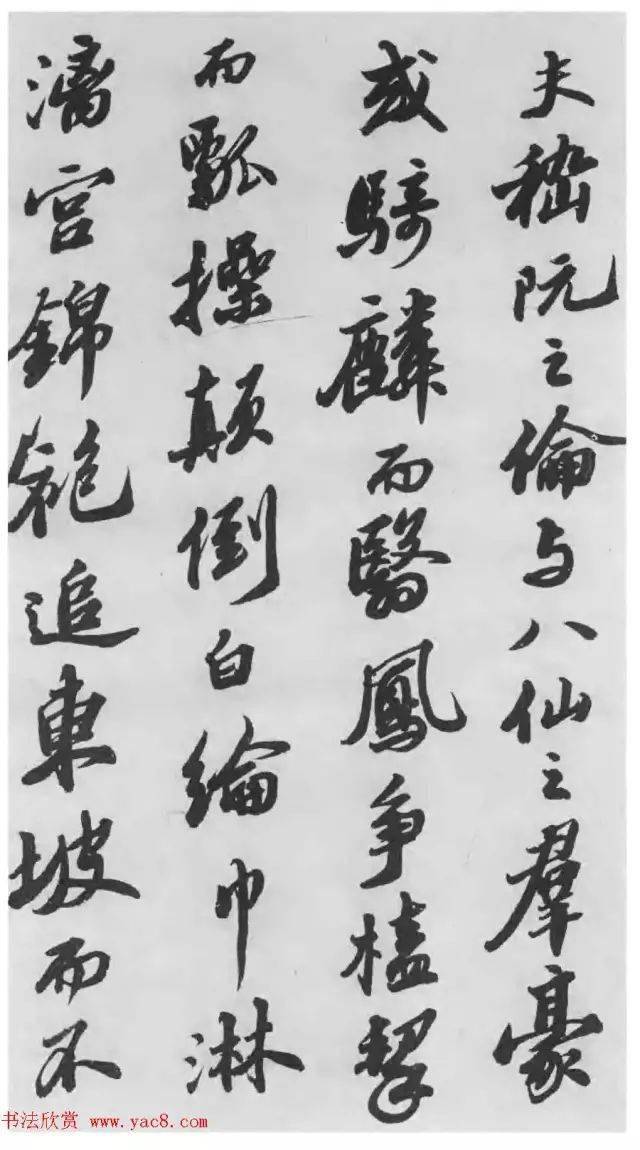 夫嵇阮之倫与八仙之羣豪
或騎麟而翳鳳争榼挈
而瓢操顛倒白綸巾淋
漓宮錦袍追東坡而不
书法欣赏 www.yac8.com